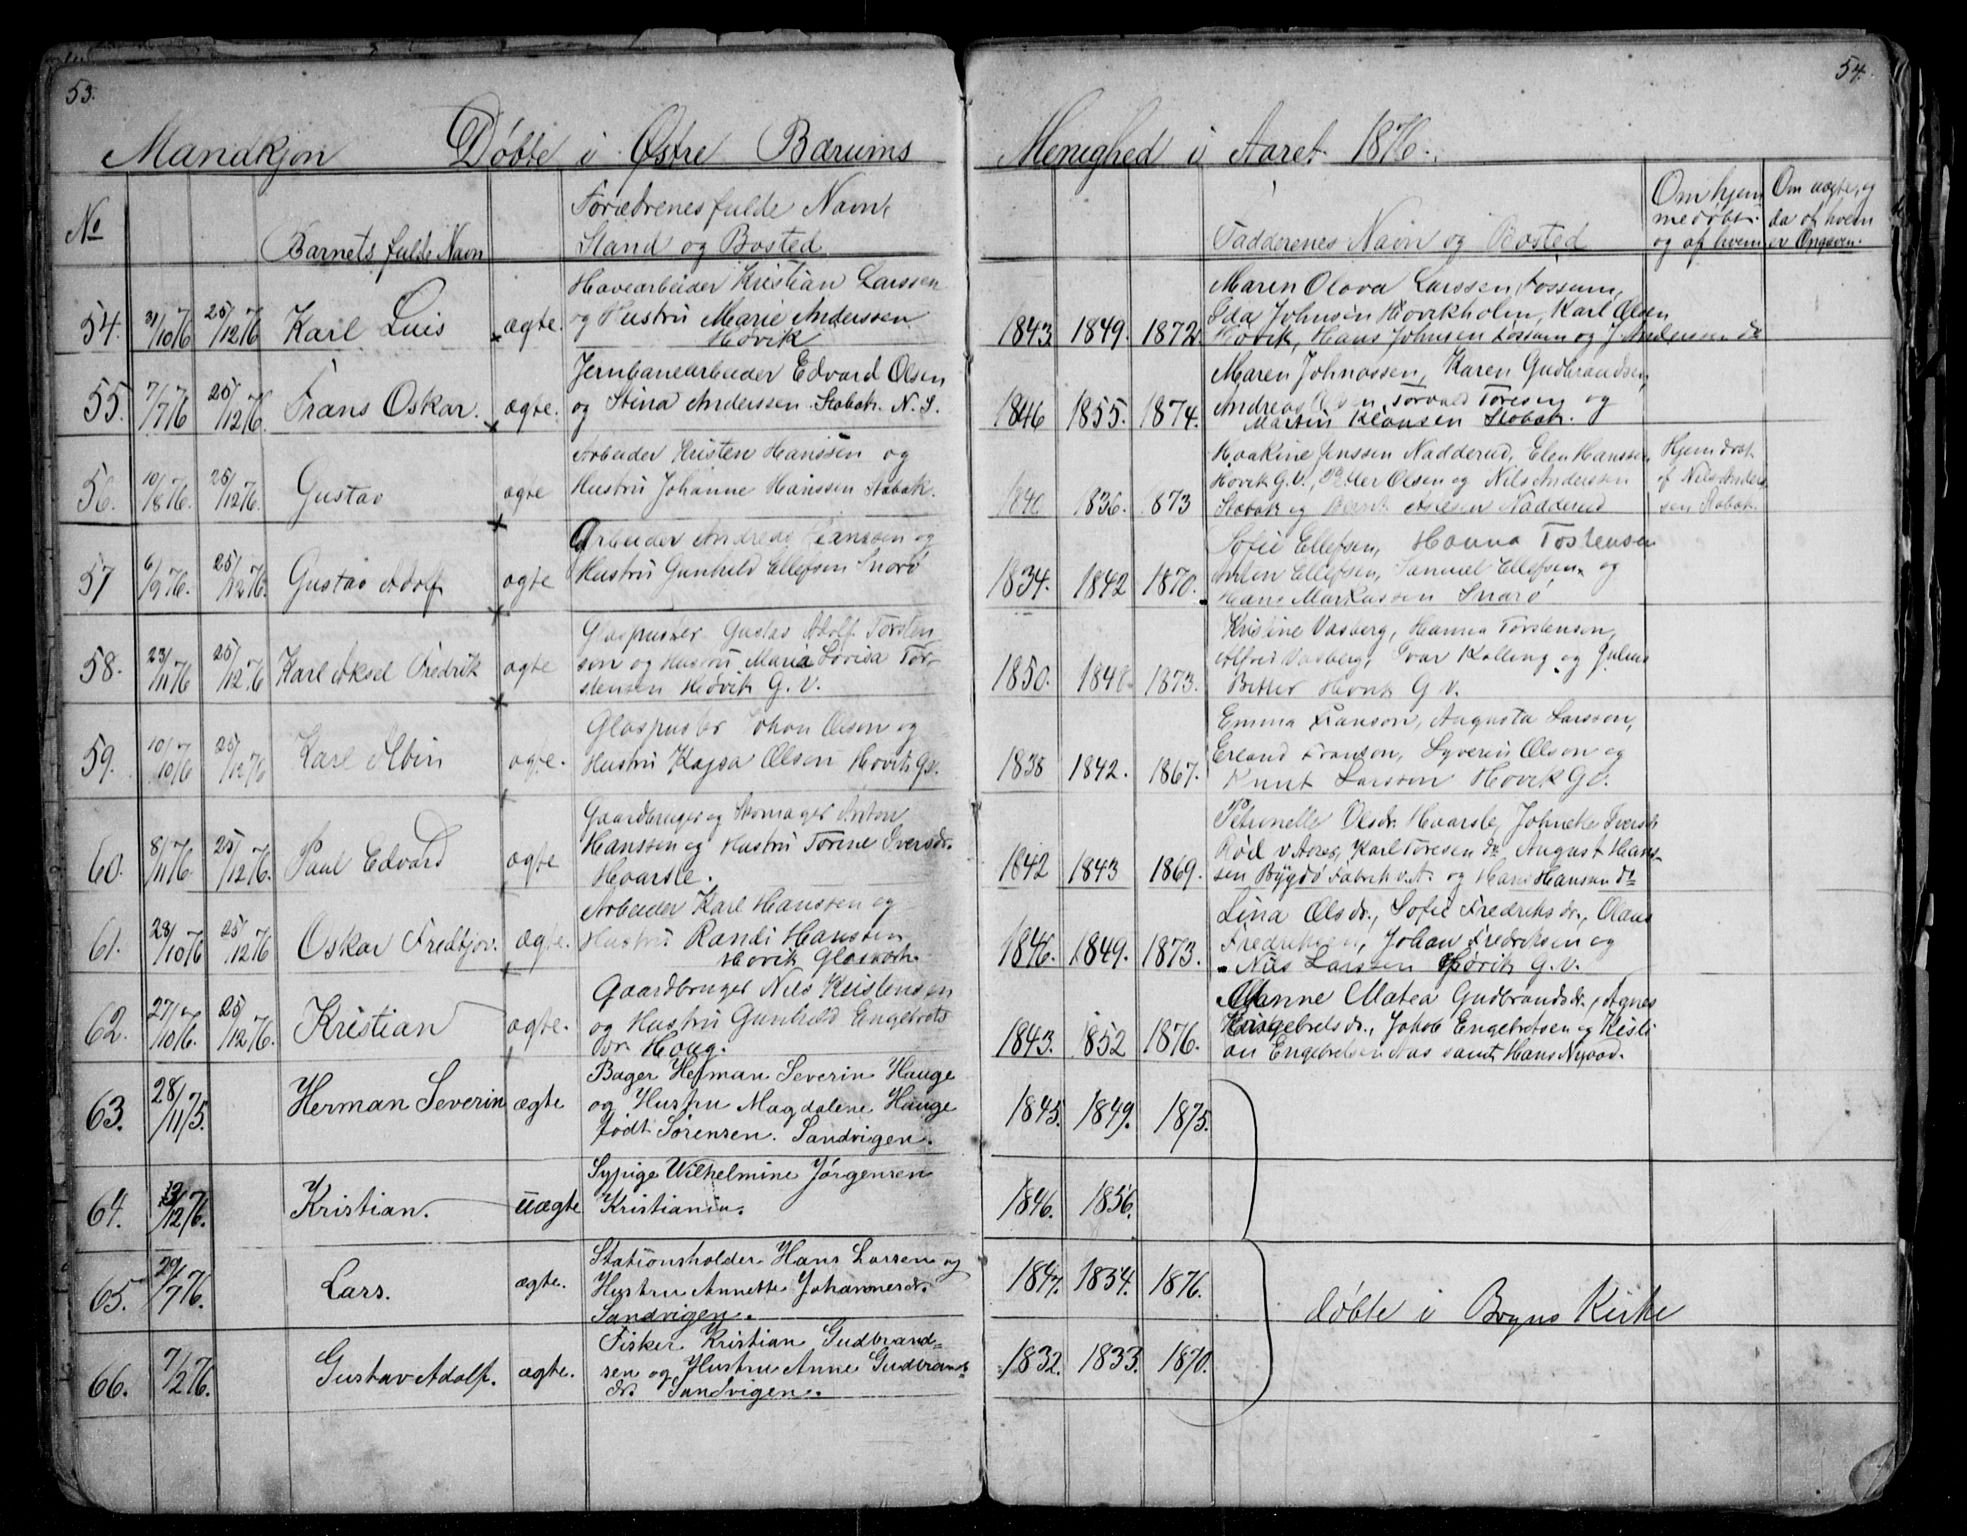 53.
54.
Mandkjøn Døbte i Østre Bærums Menighed i Aaret 1876.
No
Barnets fulde Navn
Forældrenes fulde Navn,
Stand og Bosted
Fadderenes Navn og Bosted
Om hjem
medøbt
og af hvem
Om uægte, og
da af hvem
er Opgiven.
54. 31/10 76 25/12 76 Karl Luis ægte.
Havearbeider Kristian Larssen
og Hustru Marie Anderssen
Høvik
1843 1849. 1872.
Maren Olava Larssen, Fossum,
Ida Johnsen Høvikholm, Karl Olsen
Høvik, Hans Johnsen Fossum og J Andersen do
55. 7/7 76 25/12 76. Frans Oskar. ægte.
Jernbanearbeider Edvard Olsen
og Stina Anderssen Stabæk. N. S.
1846 1855. 1874.
Maren Johnassen, Karen Gudbrandsen,
Andreas Olsen, Torvald Toresen og
Martin Klausen Stabæk.
56. 10/8 76. 25/12 76. Gustav ægte
Arbeider Kristen Hanssen og
Hustru Johanne Hanssen Stabæk.
1836. 1873
Haakine Jenssen Nadderud, Elen Hanssen,
Høvik G.V., Petter Olsen og Nils Anderssen
Stabæk og Nadderud
Hjemdøbt
af Nils Anders
sen Stabæk.
57 6/9 76. 25/12 76. Gustav Adolf ægte
Arbeider Andreas og
Hustru Gunhild Ellefsen Snarø
1834. 1842 1870.
Sofie Ellefsen, Hanna Tostensen
Anton Ellefsen, Samuel Ellefsen og
Hans Markussen Snarø
58. 23/11 76 25/12 76 Karl Aksel Fredrik ægte
Glaspuster Gustav Adolf Torsten
sen og Hustru Maria Lovisa Tor-
stensen Høvik G. V.
1850. 1848 1873.
Kristine Vasberg, Hanna Torstensen,
Alfred Vasberg, Ivar Kolling og Julius
Bitter Høvik G V.
59. 10/10 76 25/12 76 Karl Albin ægte.
Glaspuster Johan Olson og
Hustru Kajsa Olsen Høvik Gv.
1838 1842. 1867.
Emma Franson, Augusta Larsson,
Erland Franson, Syverin Olson og
Knut Larsson Høvik G V.
60. 8/11 76. 25/12 76. Paul Edvard ægte
Gaardbruger og Skomager Anton
Hanssen og Hustru Torine Iversdr.
Haarsle.
1842 1843 1869.
Petronelle Olsdr. Haarsle, Johneke Iversdr
Rød v Aores, Karl Toresen do August Hans-
sen Bygdø Fabrik v. A. og Hans Hansen do
61. 28/10 76 25/12 76 Oskar Fredtjov. ægte.
Arbeider Karl Hanssen og
Hustru Randi Hanssen
Høvik Glasværk.
1846. 1849. 1873.
Lina Olsdr., Sofie Fredriksdr., Olaus
Fredriksen, Johan Fredriksen og
Nils Larssen Høvik G. V.
62. 27/10 76. 25/12 76. Kristian ægte.
Gaardbruger Nils Kristensen
og Hustru Gunhild Engebrets
dr. Haug.
1843. 1852 1876.
Manne Matea Gudbrandsdr., Agnes
Engebretsdr., Jakob Engebretsen og Kristi
an Engebretsen Aas samt Hans Nygaad.
63. 28/11 75. Herman Severin ægte
Bager Herman Severin Hauge
og Hustru Magdalene Hauge
født Sørensen. Sandvigen.
1845. 1849. 1875.
64. 12/12 76. Kristian. uægte
Sypige Wilhelmine Jørgensen
Kristiania.
1846. 1856.
65. 29/7 76. Lars. ægte.
Stationsholder Hans Larsen og
Hustru Annette Johannesdr.
Sandvigen.
1847. 1834. 1876.
døbte i Bryns Kirke
66. 7/12 76. Gustav Adolf. ægte.
Fisker Kristian Gudbrand-
sen og Hustru Anne Gudbrands
dr. Sandvigen.
1832. 1833. 1870.